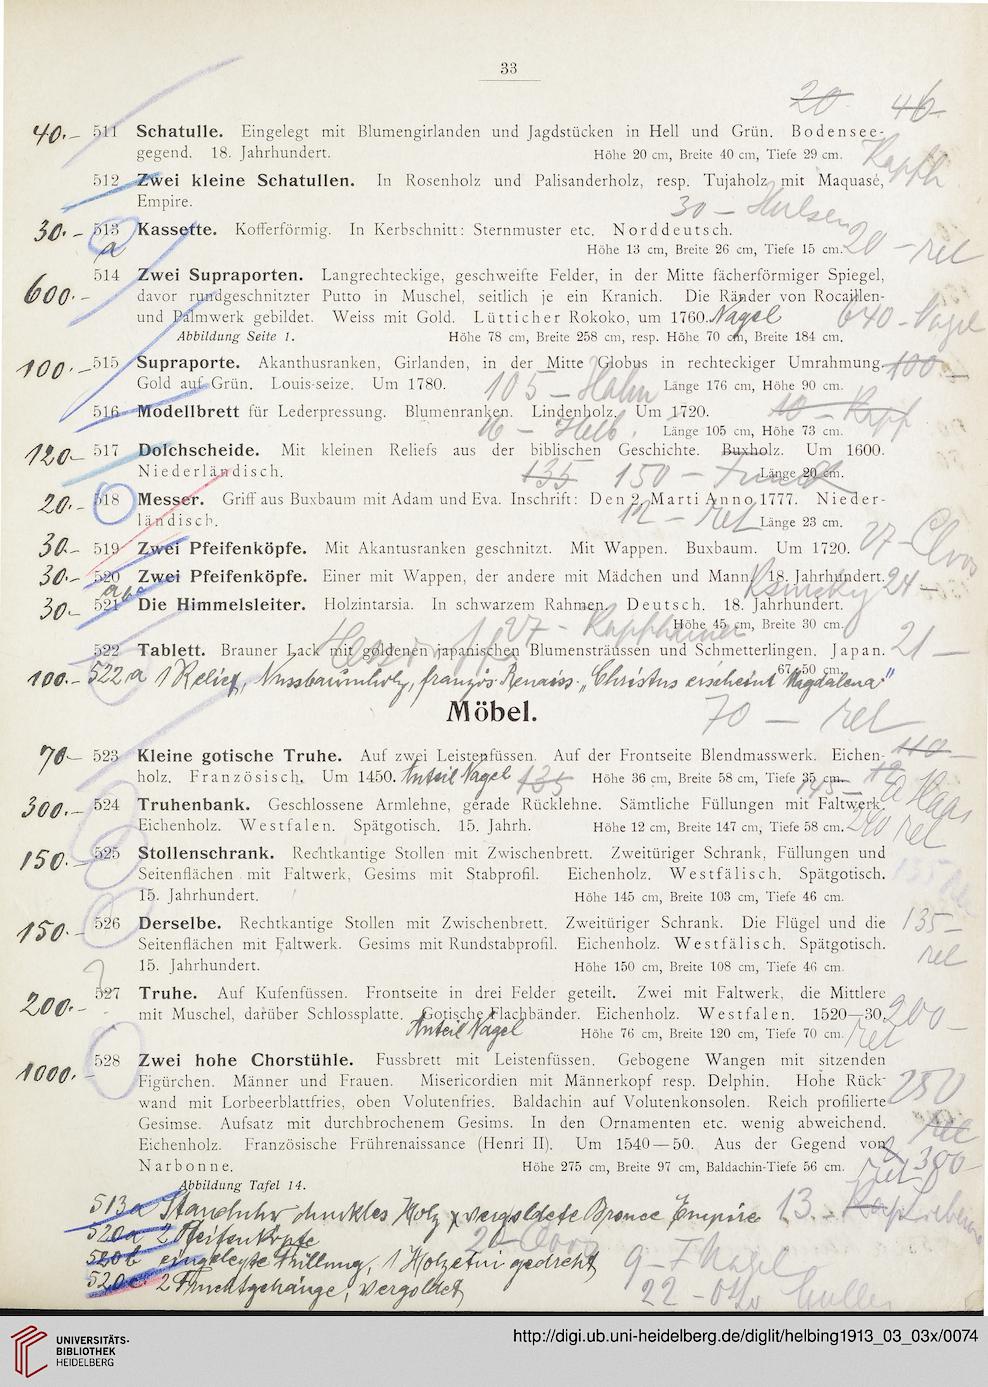 33
20 46
40.– 511 Schatulle. Eingelegt mit Blumengirlanden und Jagdstücken in Hell und Grün. Bodensee-
gegend. 18. Jahrhundert. Höhe 20 cm, Breite 40 cm, Tiefe 29 cm.
512 Zwei kleine Schatullen. In Rosenholz und Palisanderholz, resp. Tujaholz mit Maquasé,
Empire.
30 –
30.– 513 Kassette. Kofferförmig. In Kerbschnitt: Sternmuster etc. Norddeutsch.
a Höhe 13 cm, Breite 26 cm, Tiefe 15 cm. 20 – rel
514 Zwei Supraporten. Langrechteckige, geschweifte Felder, in der Mitte fächerförmiger Spiegel,
600.– davor rundgeschnitzter Putto in Muschel, seitlich je ein Kranich. Die Ränder von Rocaillen-
und Palmwerk gebildet. Weiss mit Gold. Lütticher Rokoko, um 1760. Nagel 640 – Nagel
Abbildung Seite 1. Höhe 78 cm, Breite 258 cm, resp. Höhe 70 cm, Breite 184 cm.
100.– 515 Supraporte. Akanthusranken, Girlanden, in der Mitte Globus in rechteckiger Umrahmung. 100 –
Gold auf Grün. Louis-seize. Um 1780. 105 – Hahn Länge 176 cm, Höhe 90 cm.
516 Modellbrett für Lederpressung. Blumenranken. Lindenholz. Um 1720. 10 –
16 – Helb. Länge 105 cm, Höhe 73 cm.
120– 517 Dolchscheide. Mit kleinen Reliefs aus der biblischen Geschichte. Buxholz. Um 1600.
Niederländisch. 135 150 – Länge 20 cm.
20.– 518 Messer. Griff aus Buxbaum mit Adam und Eva. Inschrift: Den 2. Marti Anno 1777. Nieder-
ländisch. 12 – rel Länge 23 cm.
30.– 519 Zwei Pfeifenköpfe. Mit Akantusranken geschnitzt. Mit Wappen. Buxbaum. Um 1720. 27 – Cloos
30.– 520 Zwei Pfeifenköpfe. Einer mit Wappen, der andere mit Mädchen und Mann. 18. Jahrhundert. 24 –
a b c
30.– 521 Die Himmelsleiter. Holzintarsia. In schwarzem Rahmen. Deutsch. 18. Jahrhundert.
27 – Höhe 45 cm, Breite 30 cm.
522 Tablett. Brauner Lack mit goldenen japanischen Blumensträussen und Schmetterlingen. Japan. 21 –
67 : 50 cm.
100.– 522a 1 Relief, Nussbaumholz, französ. Renaiss. „Christus erscheint Magdalena"
Möbel. 70 – rel
70– 523 Kleine gotische Truhe. Auf zwei Leistenfüssen. Auf der Frontseite Blendmasswerk. Eichen- 110 –
holz. Französisch. Um 1450. Anteil Nagel 135 Höhe 36 cm, Breite 58 cm, Tiefe 35 cm.
145 – Haas
300.– 524 Truhenbank. Geschlossene Armlehne, gerade Rücklehne. Sämtliche Füllungen mit Faltwerk.
Eichenholz. Westfalen. Spätgotisch. 15. Jahrh. Höhe 12 cm, Breite 147 cm, Tiefe 58 cm. 240 rel
150.– 525 Stollenschrank. Rechtkantige Stollen mit Zwischenbrett. Zweitüriger Schrank, Füllungen und
Seitenflächen mit Faltwerk, Gesims mit Stabprofil. Eichenholz. Westfälisch. Spätgotisch. 135 rel
15. Jahrhundert. Höhe 145 cm, Breite 103 cm, Tiefe 46 cm.
150.– 526 Derselbe. Rechtkantige Stollen mit Zwischenbrett. Zweitüriger Schrank. Die Flügel und die 135 –
Seitenflächen mit Faltwerk. Gesims mit Rundstabprofil. Eichenholz. Westfälisch. Spätgotisch. rel
15. Jahrhundert. Höhe 150 cm, Breite 108 cm, Tiefe 46 cm.
?
200.– 527 Truhe. Auf Kufenfüssen. Frontseite in drei Felder geteilt. Zwei mit Faltwerk, die Mittlere
mit Muschel, darüber Schlossplatte. Gotische Flachbänder. Eichenholz. Westfalen. 1520—30. 200 –
Anteil Nagel Höhe 76 cm, Breite 120 cm, Tiefe 70 cm. rel
1000.– 528 Zwei hohe Chorstühle. Fussbrett mit Leistenfüssen. Gebogene Wangen mit sitzenden
Figürchen. Männer und Frauen. Misericordien mit Männerkopf resp. Delphin. Hohe Rück- 250
wand mit Lorbeerblattfries, oben Volutenfries. Baldachin auf Volutenkonsolen. Reich profilierte
Gesimse. Aufsatz mit durchbrochenem Gesims. In den Ornamenten etc. wenig abweichend. rel
Eichenholz. Französische Frührenaissance (Henri II). Um 1540—50. Aus der Gegend von
Narbonne. Höhe 275 cm, Breite 97 cm, Baldachin-Tiefe 56 cm. rel 300 –
Abbildung Tafel 14.
513a Standuhr dunkles Holz vergoldete Bronce Empire 13.–
520a 2 Pfeifenköpfe
520b eingelegte Trillung, 1 Holzetui gedreht 9 – Nagel
520c 2 Fruchtgehänge, vergoldet 22 –
UNIVERSITÄTS-
BIBLIOTHEK
HEIDELBERG
http://digi.ub.uni-heidelberg.de/diglit/helbing1913_03_03x/0074